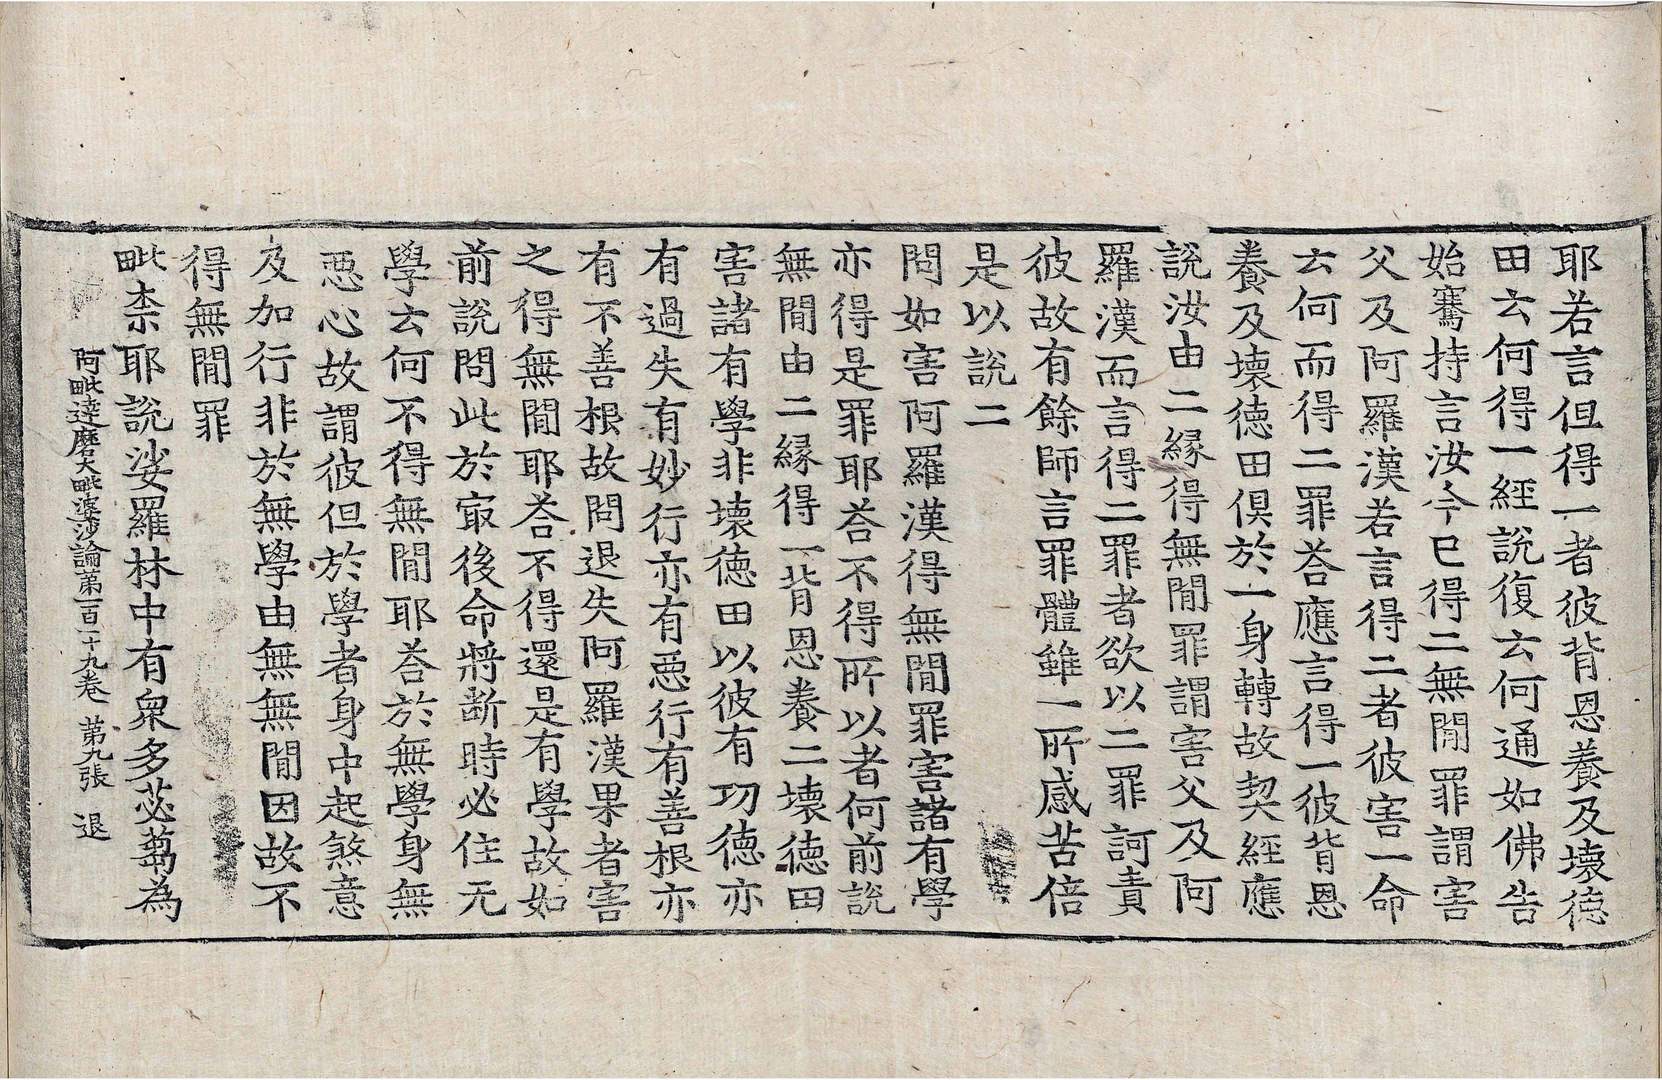 耶若言但得一者彼背恩養及壞德
田云何得一經說復云何通如佛告
始騫持言汝今已得二無閒罪謂害
父及阿羅漢若言得二者彼害一命
云何而得二罪荅應言得一彼背恩
養及壞德田俱於一身轉故契經應
說汝由二緣得無閒罪謂害父及阿
羅漢而言得二罪者欲以二罪訶責
彼故有餘師言罪體雖一所感苦倍
是以說二
問如害阿羅漢得無閒罪害諸有學
亦得是罪耶荅不得所以者何前說
無閒由二緣得一背恩養二壞德田
害諸有學非壞德田以彼有功德亦
有過失有妙行亦有惡行有善根亦
有不善根故問退失阿羅漢果者害
之得無閒耶荅不得還是有學故如
前說問此於㝡後命將断時必住无
學云何不得無閒耶荅於無學身無
惡心故謂彼但於學者身中起煞意
及加行非於無學由無無閒因故不
得無閒罪
毗柰耶說娑羅林中有衆多苾蒭為
阿毗達磨大毗婆沙論第一百一十九卷 第九張 退